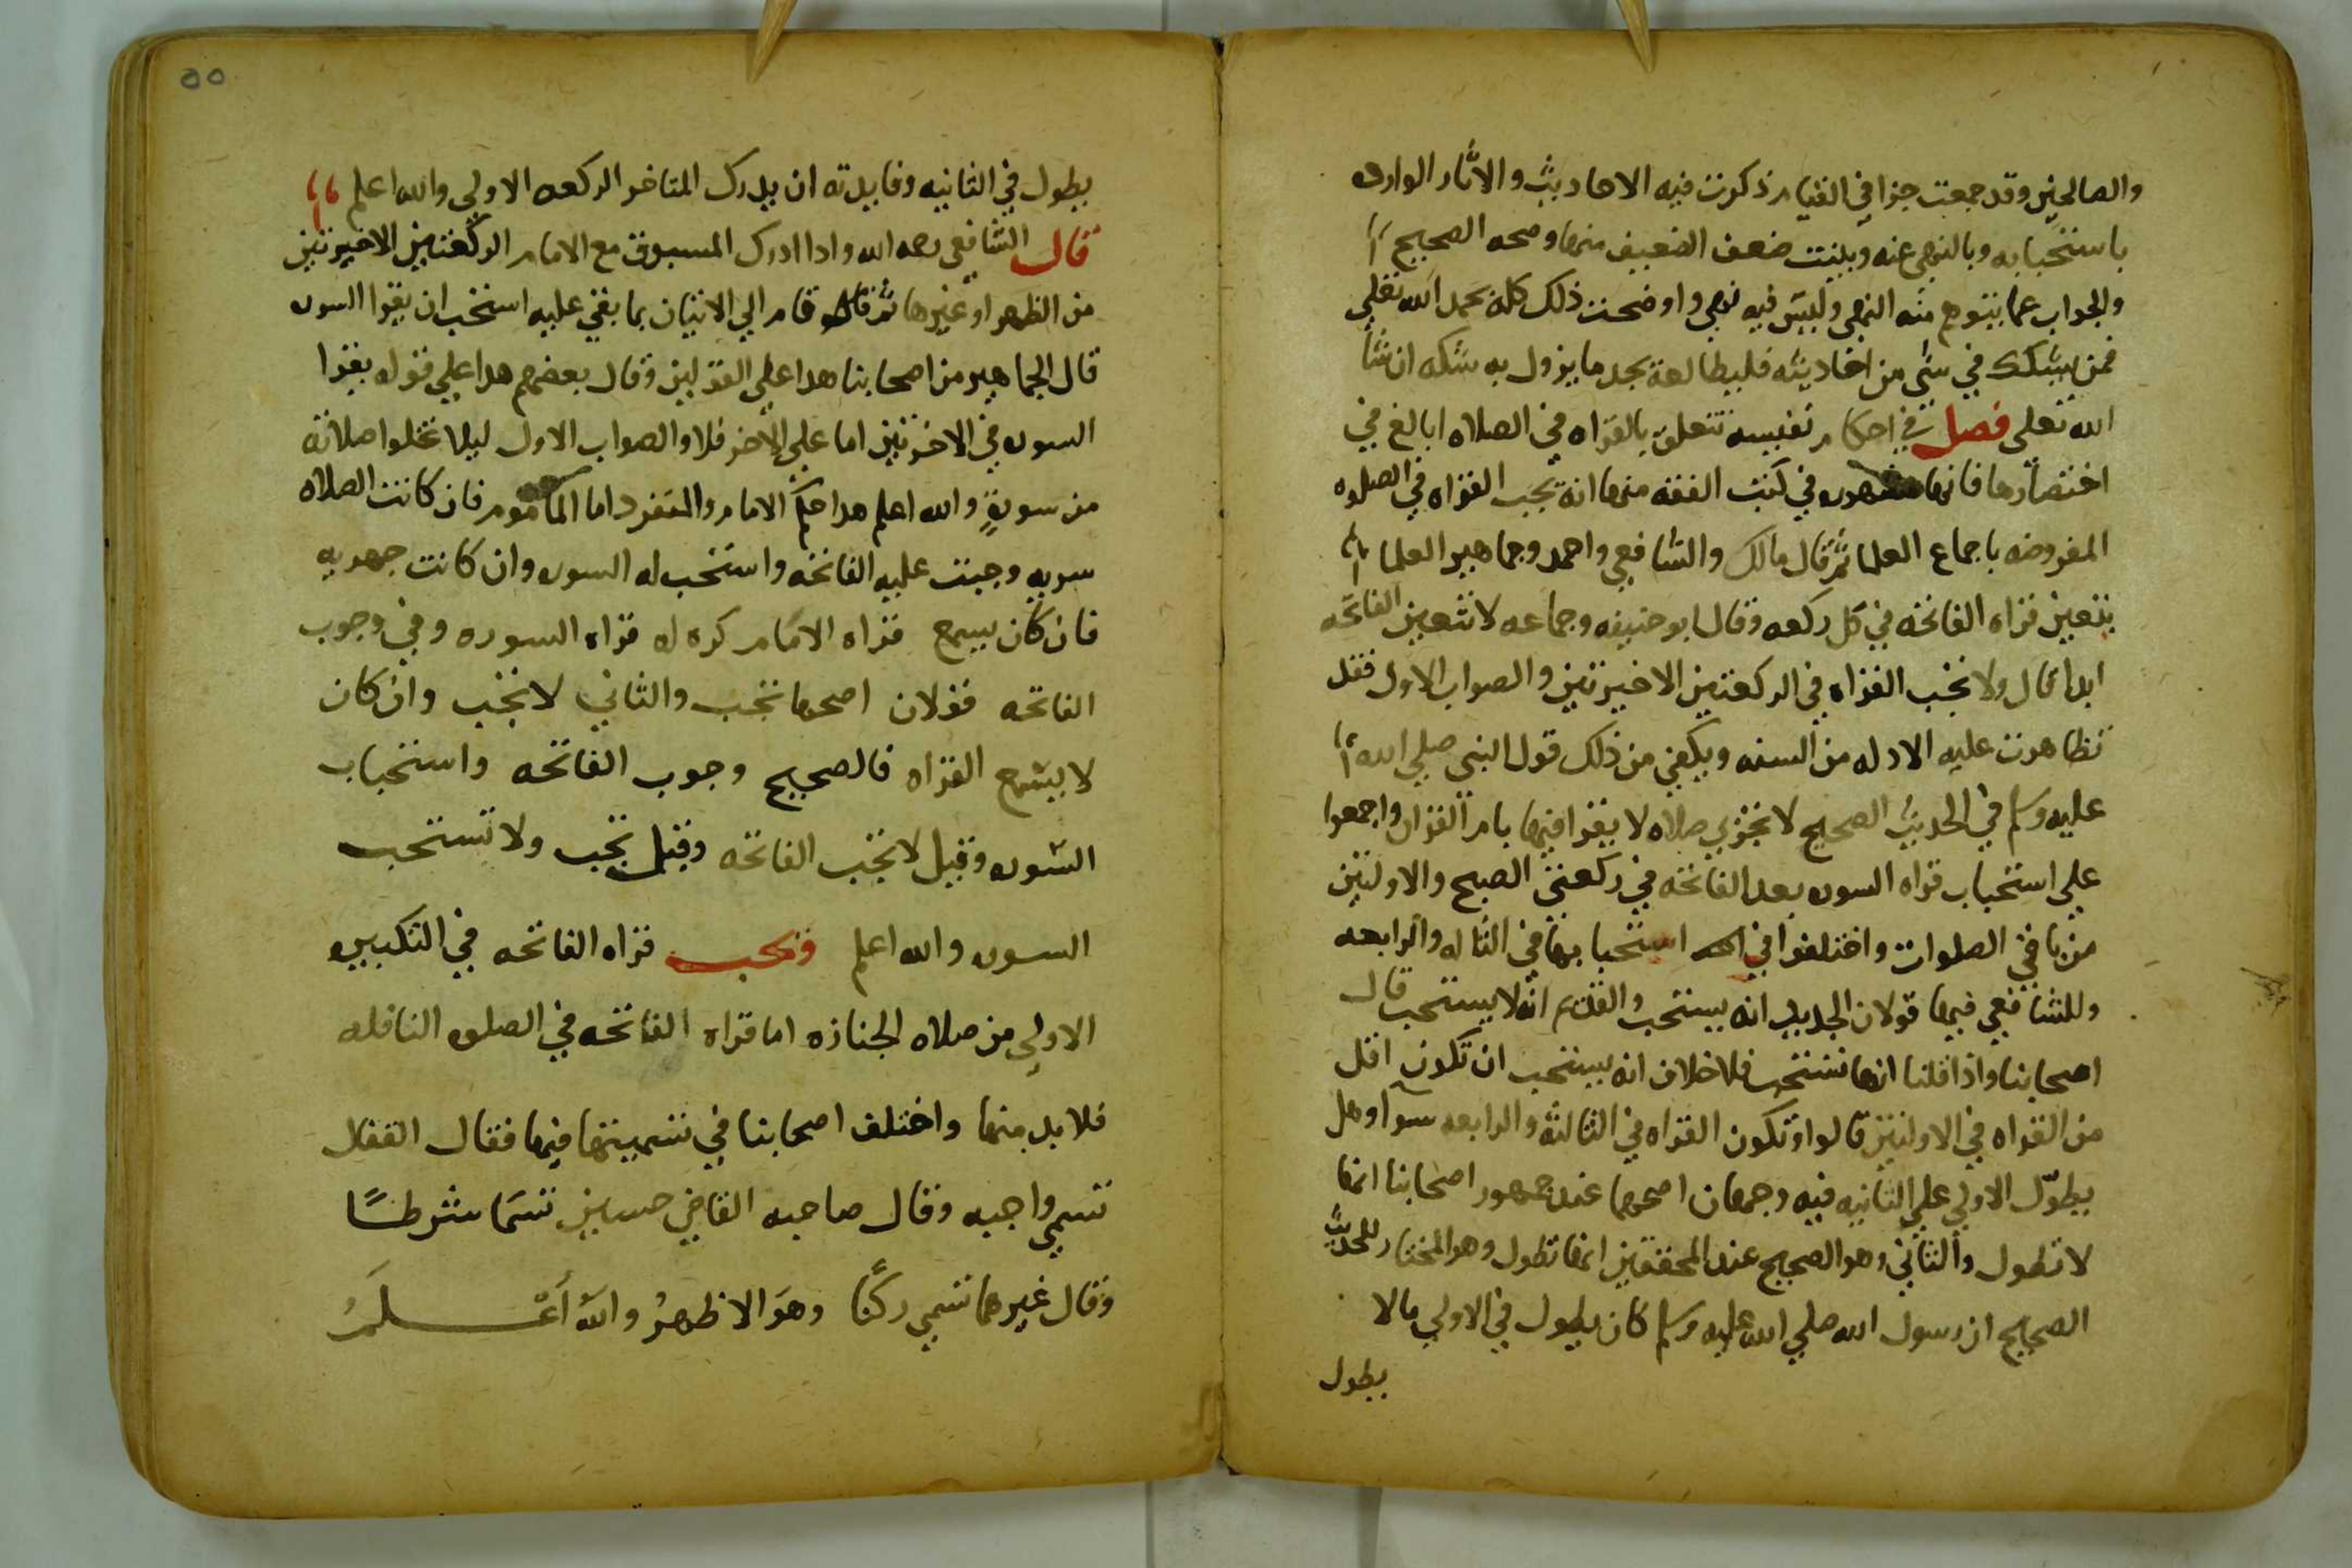 والصالحين وقد جمعت جزا في القيام ذكرت فيه الاحاديث والاثار الوارده
باستحبابه وبالنهي عنه وبينت ضعف الضعيف منها وصحه الصحيح
والجواب عما يتوهم منه النهي وليس فيه نهي واوضحت ذلك كله بحمد الله تعلي
فمن يشكك في شي من احاديثه فليطالعه يجد ما يزول به شكه ان شا
الله تعلى فصل في احكام نفيسه تتعلق بالقراه في الصلاه ابالغ في
اختصارها فانها مشهوره في كتب الفقه منها انه تجب القراه في الصلوه
المفروضه باجماع العلما ثم قال مالك والشافعي واحمد وجماهير العلما
يتعين قراه الفاتحه في كل ركعه وقال ابو حنيفه وجماعه لا تتعين الفاتحه
ابدا قال ولا تجب القراه في الركعتين الاخيرتين والصواب الاول فقد
تظاهرت عليه الادله من السنه ويكفي من ذلك قول النبي صلي الله
عليه وسلم في الحديث الصحيح لا تجزي صلاه لا يقرا فيها بام القران واجمعوا
علي استحباب قراه السوره بعد الفاتحه في ركعتي الصبح والاولتين
من باقي الصلوات واختلفوا في استحبابها في الثاله والرابعه
وللشافعي فيها قولان الجديد انه يستحب والقديم انه لا يستحب قال
اصحابنا واذا قلنا انها تستحب فلا خلاف انه يستحب ان تكون اقل
من القراه في الاولتين قالوا وتكون القراه في الثالثة والرابعه سوآ وهل
يطوّل الاولي علي الثانيه فيه وجهان اصحهما عند جمهور اصحابنا انها
لا تطول والثاني وهو الصحيح عند المحققين انها تطول وهو المختار للحديث
الصحيح ان رسول الله صلي الله عليه وسلم كان يطول في الاولي ما لا
يطول
٥٥
يطول في الثانيه وفايدته ان يدرك المتاخر الركعه الاولي والله اعلم
قال الشافعي رحمه الله واذا ادرك المسبوق مع الامام الركعتين الاخيرتين
من الظهر او غيرها ثم قام الي الاتيان بما بقي عليه استحب ان يقرا السوره
قال الجماهير من اصحابنا هدا علي القولين وقال بعضهم هدا علي قوله يقرا
السوره في الاخرتين اما علي الاخر فلا والصواب الاول ليلا تخلوا صلاته
من سورةٍ والله اعلم هدا حكم الامام والمنفرد اما الماموم فان كانت الصلاه
سريه وجبت عليه الفاتحه واستحب له السوره وان كانت جهريه
فان كان يسمع قراه الامام كره له قراه السوره وفي وجوب
الفاتحه قولان اصحهما تجب والثاني لا تجب وان كان
لا يسمع القراه فالصحيح وجوب الفاتحه واستحباب
السوره وقيل لا تجب الفاتحه وقيل تجب ولا تستحب
السوره والله اعلم وتجب قراه الفاتحه في التكبيره
الاولي من صلاه الجنازه اما قراه الفاتحه في الصلوه النافله
فلا بد منها واختلف اصحابنا في تسميتها فيها فقال القفال
تسمي واجبه وقال صاحبه القاضي حسين تسما شرطًا
وقال غيرهما تسمي ركنًا وهو الاظهرُ والله أعلَمُ